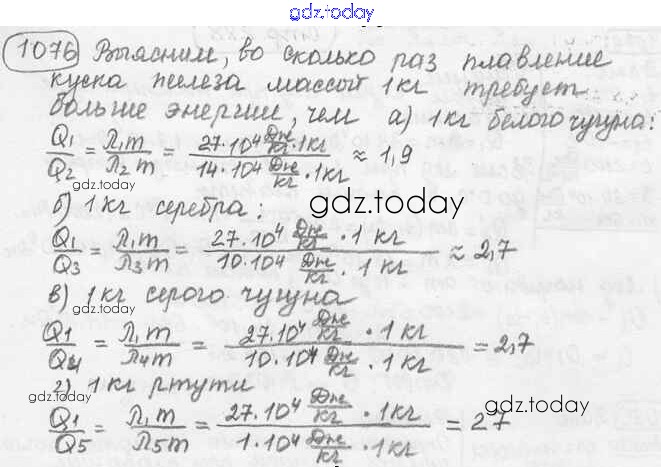 gdz.today
1076 Выясним, во сколько раз плавление
куска железа массой 1кг требует
больше энергии, чем а) 1кг белого чугуна:
Q₁/Q₂ = λ₁m/λ₂m = 27·10⁴ Дж/кг · 1кг / 14·10⁴ Дж/кг · 1кг ≈ 1,9
gdz.today
б) 1 кг серебра:
gdz.today
Q₁/Q₃ = λ₁m/λ₃m = 27·10⁴ Дж/кг · 1 кг / 10·10⁴ Дж/кг · 1 кг ≈ 2,7
в) 1 кг серого чугуна
Q₁/Q₄ = λ₁m/λ₄m = 27·10⁴ Дж/кг · 1 кг / 10·10⁴ Дж/кг · 1 кг = 2,7
г) 1 кг ртути
gdz.today
gdz.today
Q₁/Q₅ = λ₁m/λ₅m = 27·10⁴ Дж/кг · 1кг / 1·10⁴ Дж/кг · 1кг = 27